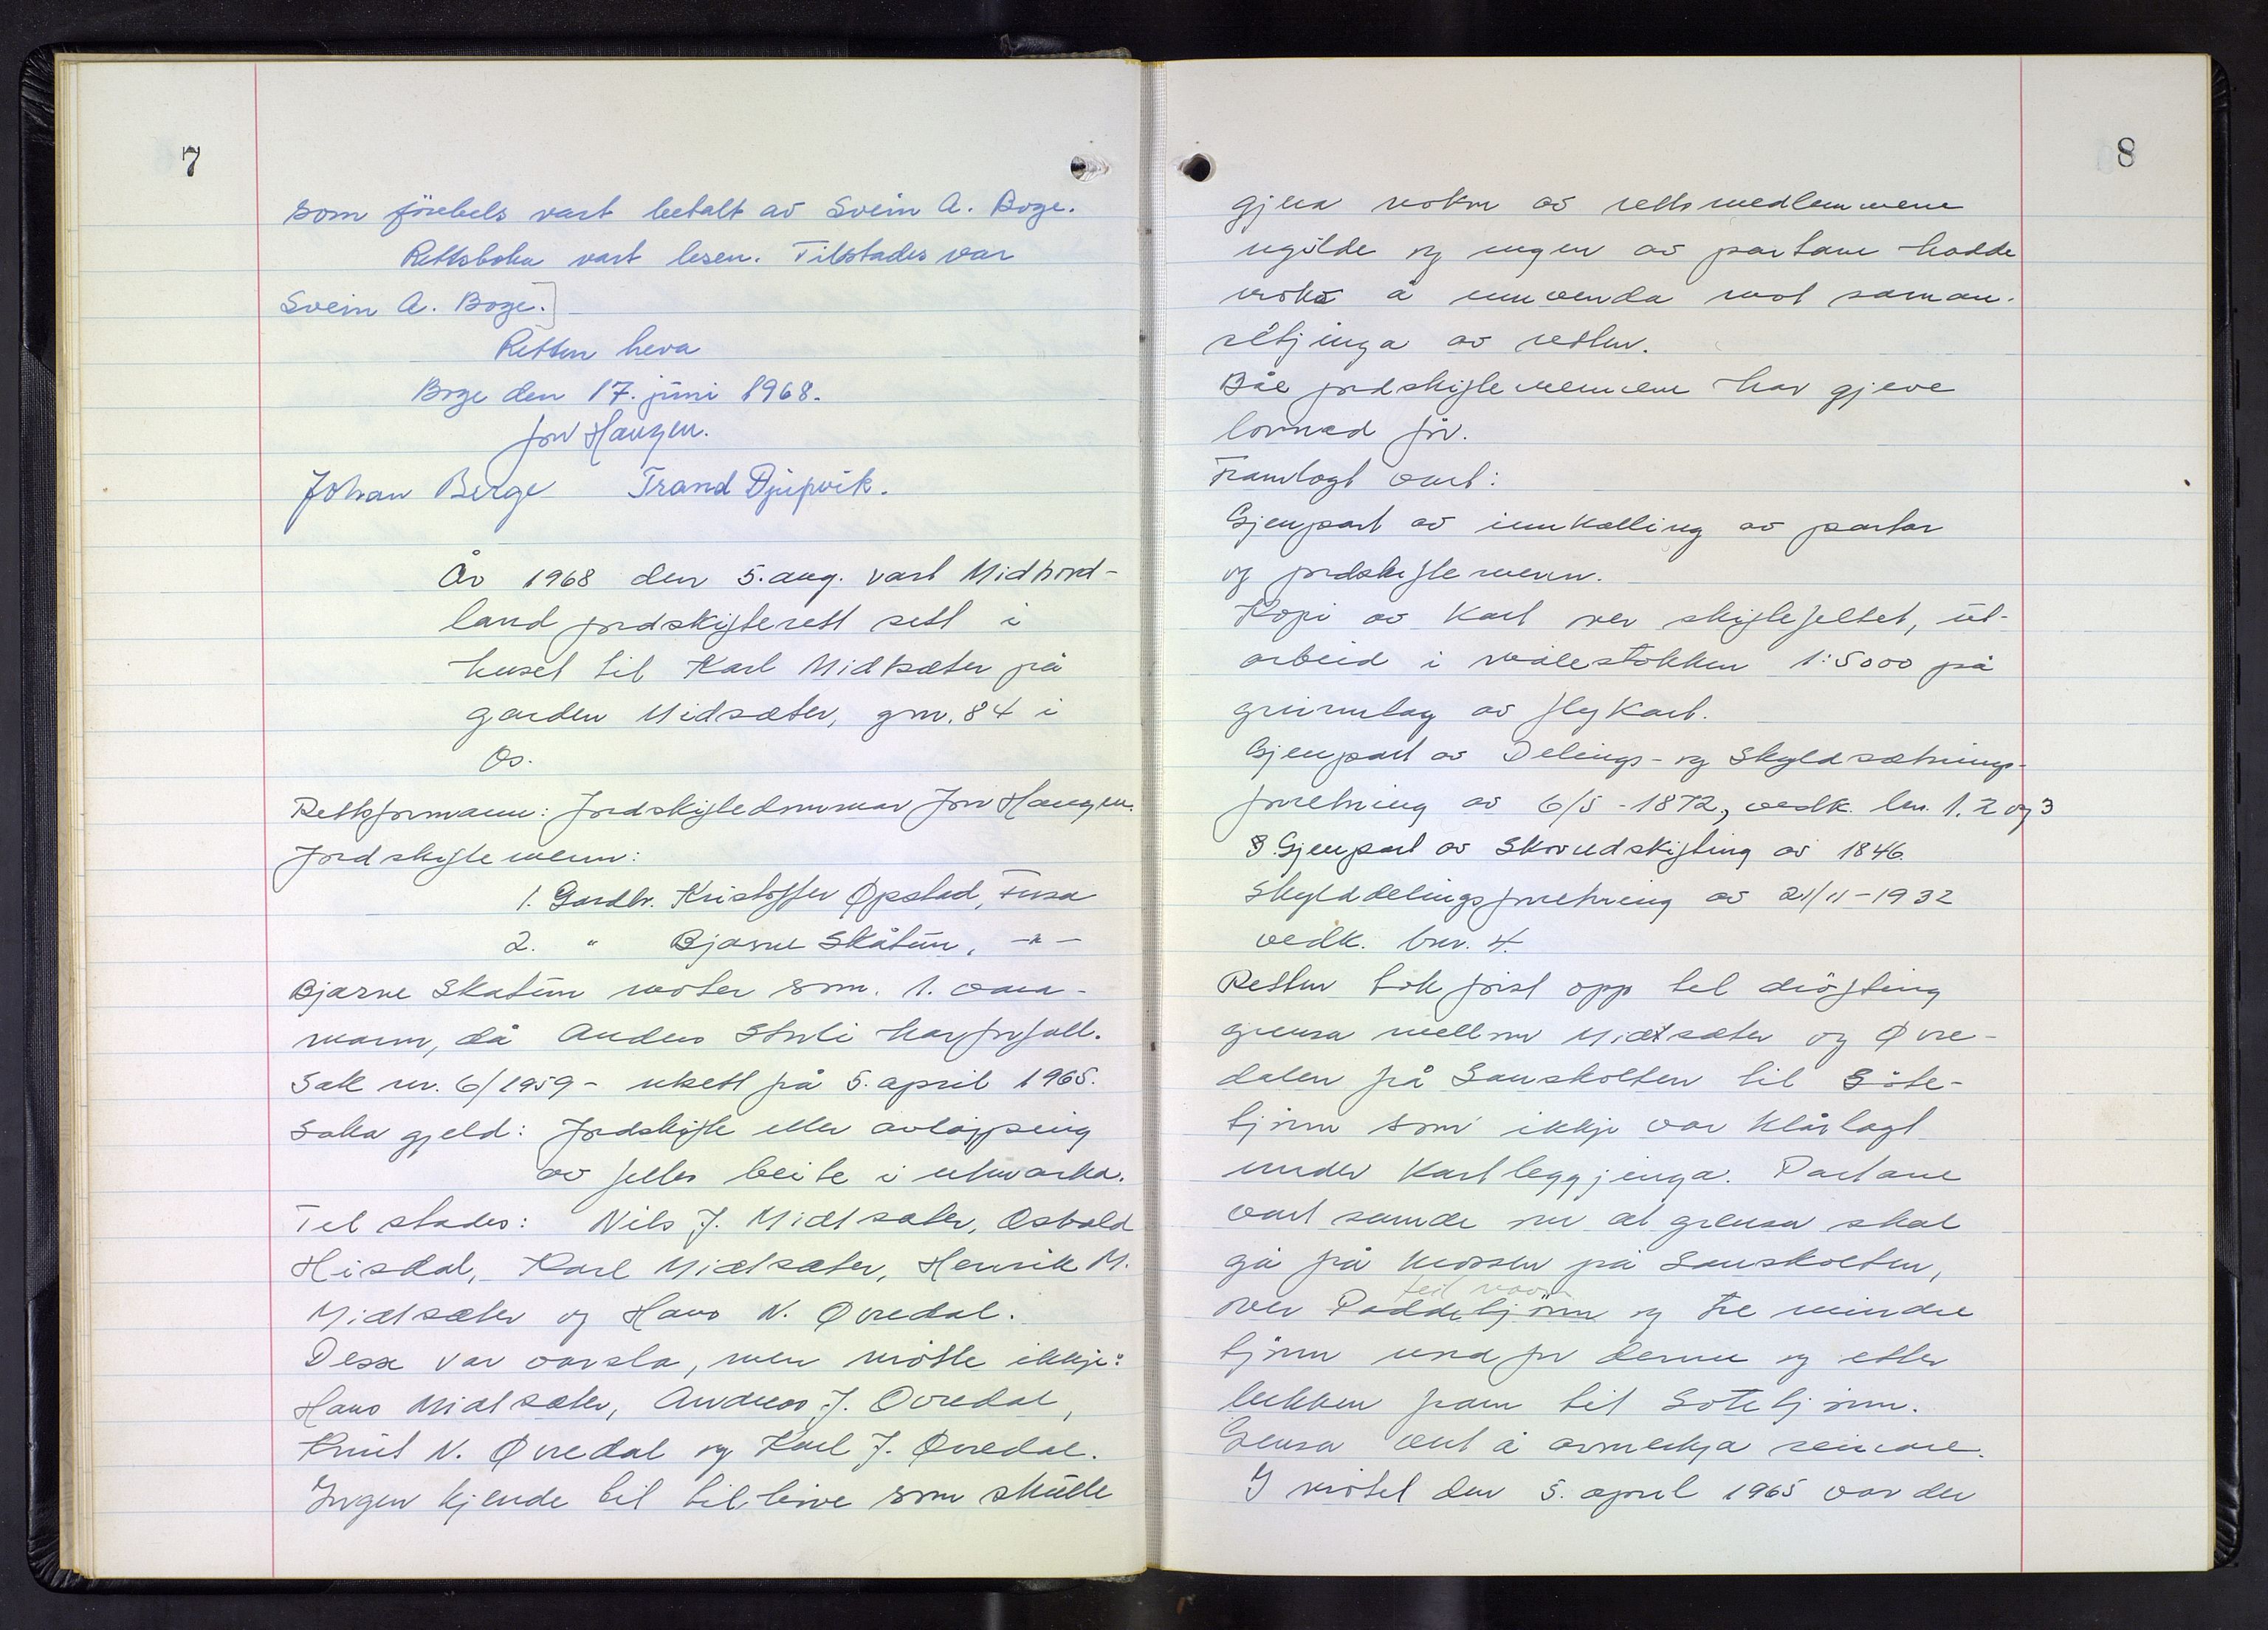 7
som förebels vart betalt av Svein A. Boge.
Rettsboka vart lesen. Tilstades var
Svein A. Boge.
Retten heva
Boge den 17. juni 1968.
Jon Haugen.
Johan Berge Trand Djupvik.
År 1968 den 5. aug. vart Midhord-
land jordskifterett sett i
huset til Karl Midtsæter på
garden Midsæter, gnr. 84 i
Os.
Rettsformann: Jordskiftedommar Jon Haugen.
Jordskiftemenn:
1. Gardbr. Kristoffer Opstad, Fusa
2. " Bjarne Skåtun, -"-
Bjarne Skatun møter som 1. vara-
mann, då Anders Stuli har forfall.
Sak nr. 6/1959 - utsett på 5. april 1965.
Saka gjeld: Jordskifte eller avløysing
av felles beite i utmarka.
Til stades: Nils J. Midtsæter, Osvald
Hisdal, Karl Midtsæter, Henrik M.
Midtsæter og Hans N. Øvredal.
Desse var varsla, men møtte ikkje:
Hans Midtsæter, Andreas J. Øvredal,
Knut N. Øvredal og Karl J. Øvredal.
Ingen kjende til tilhøve som skulle
8
gjera nokon av rettsmedlemmene
ugilde og ingen av partane hadde
noko å innvenda mot saman-
setjinga av retten.
Båe jordskiftemennene har gjeve
lovnad før.
Framlagt vart:
Gjenpart av innkalling av partar
og jordskiftemenn.
Kopi av kart over skiftefeltet, ut-
arbeid i målestokken 1:5000 på
grunnlag av flykart.
Gjenpart av Delings- og Skyldsætnings-
forretning av 6/5 - 1872, vedk. bnr. 1. 2 og 3
Gjenpart av Skovudskifting av 1846.
Skylddelingsforretning av 21/11 - 1932
vedk. bnr. 4.
Retten tok først opp til drøfting
grensa mellom Midtsæter og Øvre-
dalen på Sauskolten til Söte-
tjönn som ikkje var klårlagt
under kartleggjinga. Partane
vart samde om at grensa skal
gå frå knausen på Sauskolten,
over Paddetjönn og tre mindre
tjönn uta for denne og etter
bekken fram til Sötetjönn.
Grensa vert å avmerkja seinare.
I møtet den 5. april 1965 var der